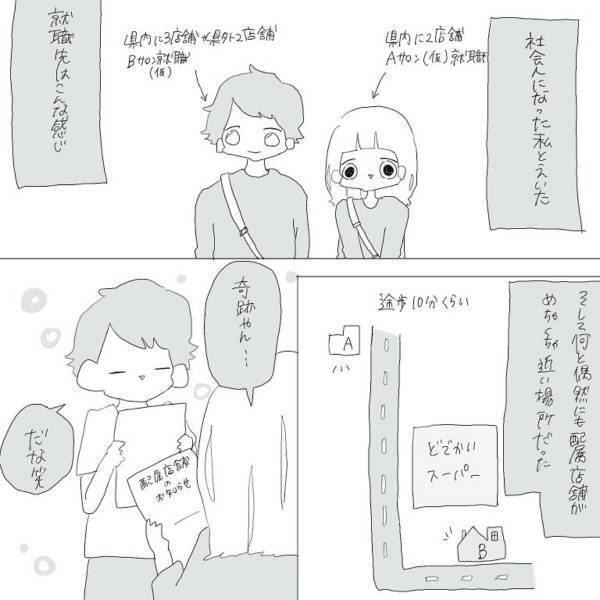 社会人になった私とえいた
県内に2店舗
Aサロン(仮)就職
県内に3店舗+県外に2店舗
Bサロン就職
(仮)
就職先はこんな感じ
そして何と偶然にも配属店舗が
めちゃくちゃ近い場所だった
途歩10分くらい
A
どでかい
スーパー
B
奇跡やん…
配属店舗
の
お知らせ
だな笑